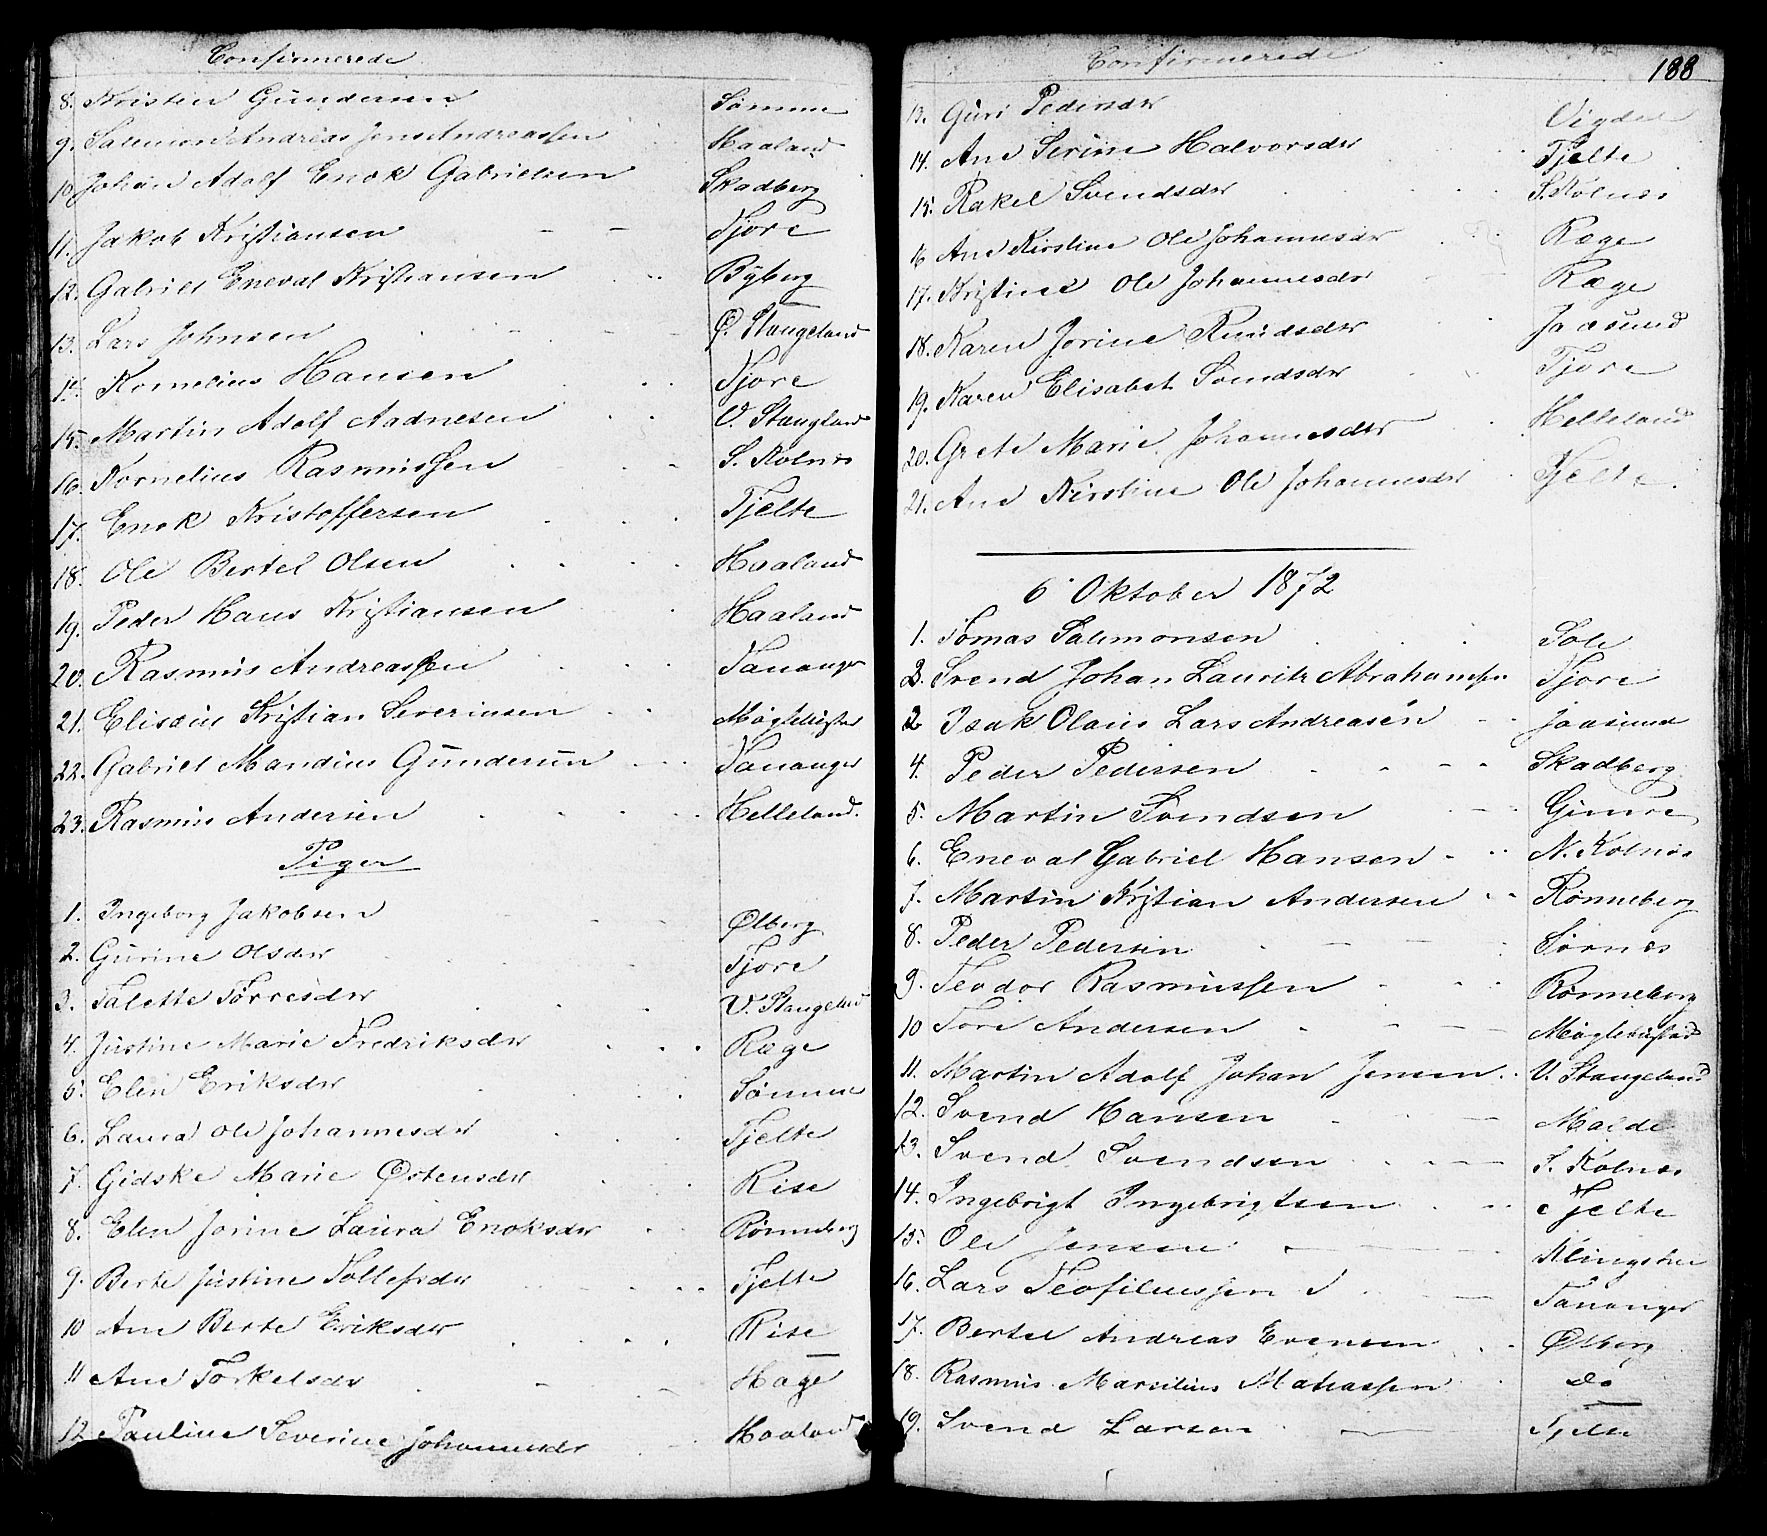 Confirmerede
8. Kristen Gundersen Sömme
9. Salemon Andreas Jens Andreassen Haaland
10. Johan Adolf Enok Gabrielsen Skadberg
11. Jakob Kristiansen Tjore
12. Gabriel Eneval Kristiansen Byberg
13. Lars Johnsen Ø. Stangeland
14. Kornelius Hansen Tjore
15. Martin Adolf Aadnesen V. Stangland
16. Kornelius Rasmussen S. Kolnes
17. Enok Kristoffersen Tjelte
18. Ole Bertel Olsen Haaland
19. Peder Hans Kristiansen Haaland
20. Rasmus Andreassen Tananger
21. Elisæus Kristian Severinsen
22. Gabriel Mandius Gundersen Tananger
23. Rasmus Andersen Helleland.
Piger
1. Ingeborg Jakobsen Ølberg
2. Gurine Olsdtr Tjore
3. Talette Torresdtr V. Stangeland
4. Justine Marie Fredriksdtr Ræge
5. Elen Eriksdtr Sömme
6. Laura Ole Johannesdtr Tjelte
7. Gidske Marie Østensdtr Rise
8. Elen Jorine Laura Enoksdtr Rönneberg
9. Berte Justine Tollefsdtr Tjelte
10 Ane Berte Eriksdtr Rise
11 Ane Torkelsdtr Hage
12 Pauline Severine Johannesdtr Haaland
Confirmerede 188
13. Guri Pedersdtr Vigdel
14. Ane Serine Halvorsdtr Tjelte
15. Rakel Svendsdtr S. Kolnes
16 Ane Kirstine Ole Johannesdtr Ræge
17. Kristine Ole Johannesdtr Ræge
18. Karen Jorine Knudsdtr Jaasund
19. Karen Elisabet Svendsdtr Tjore
20. Grete Marie Johannesdtr Helleland
21. Ane Kirstine Ole Johannesdtr Tjelte.
6 Oktober 1872
1. Tomas Salemonsen Sole
3. Svend Johan Lauritz Abrahamsen Tjore
2 Isak Olaus Lars Andreasen Jaasund
4. Peder Pedersen Skadberg
5. Martin Svendsen Gimre
6. Eneval Gabriel Hansen N. Kolnes
7. Martin Kristian Andersen Rönneberg
8. Peder Pedersen Sörnes
9. Teodor Rasmussen Rönneberg
10 Tore Andersen
11. Martin Adolf Johan Jensen V. Stangeland
12. Svend Hansen Malde
13. Svend Svendsen S. Kolnes
14. Ingebrigt Ingebrigtsen Tjelte
15. Ole Jensen
16. Lars Teofilussen Tananger
17. Bertel Andreas Evensen Ølberg
18. Rasmus Marselius Matiassen do
19. Svend Larsen Tjelte